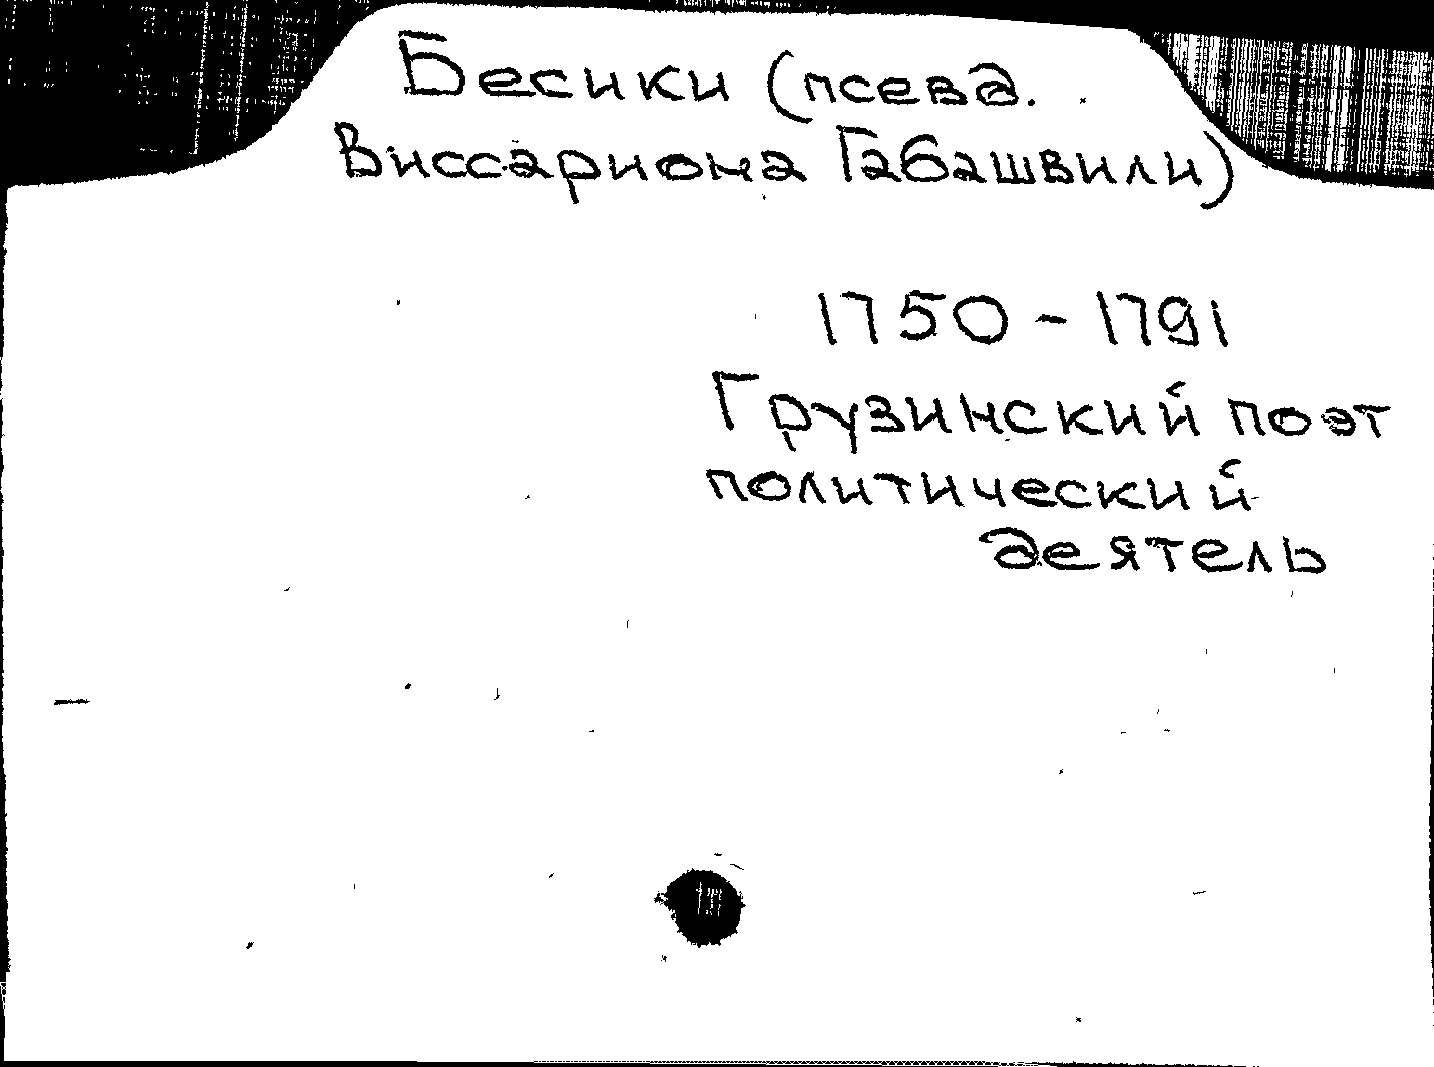 Бесики (псевд.
Виссариона Габашвили)
1750-1791
Грузинский поэт
политический
деятель